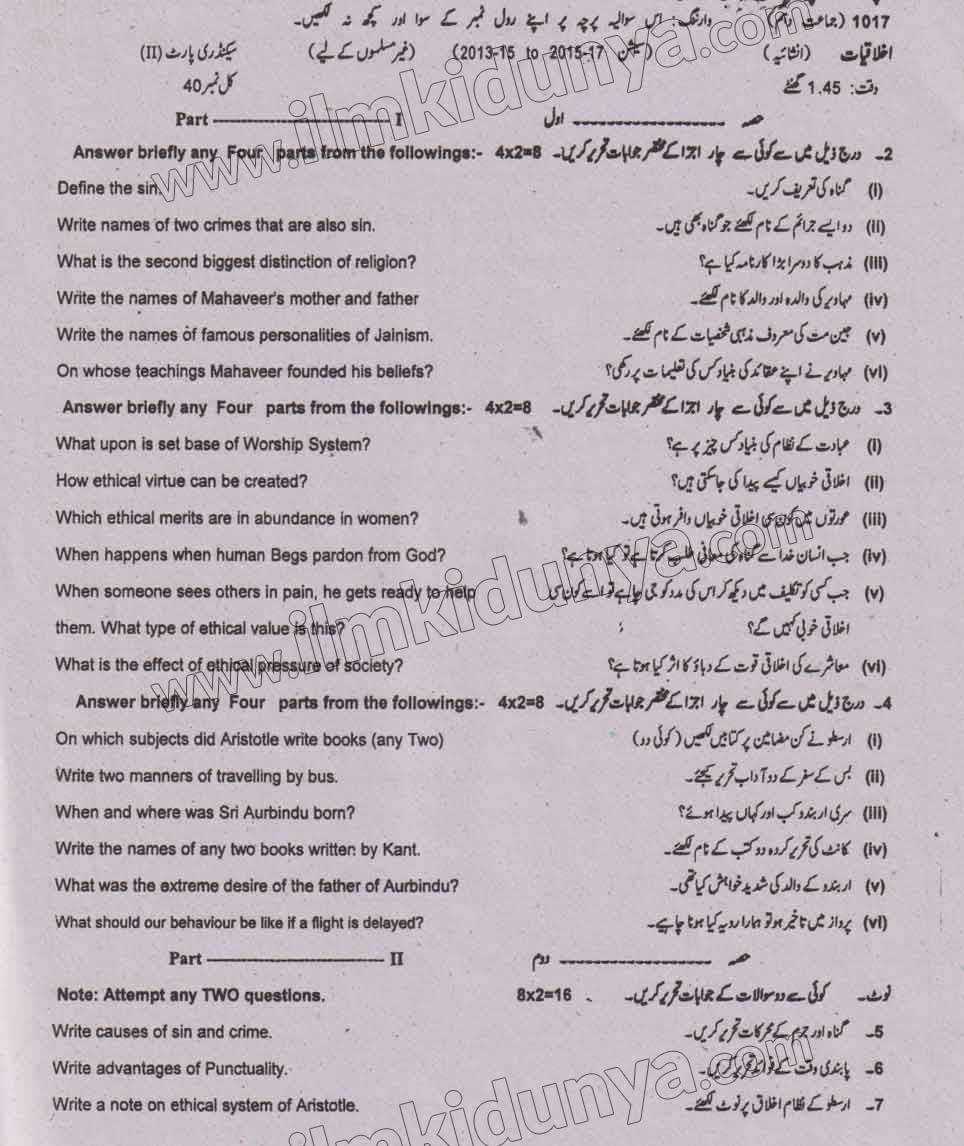 1017 (جماعت دہم) وارننگ: اس سوالیہ پرچہ پر اپنے رول نمبر کے سوا اور کچھ نہ لکھیں۔
اخلاقیات (انشائیہ) (سیشن 2015-17 to 2013-15) (غیر مسلموں کے لیے) سیکنڈری پارٹ (II)
وقت: 1.45 گھنٹے کل نمبر 40
Part -------------------- I حصہ -------------------- اول
Answer briefly any Four parts from the followings:- 4x2=8 2۔ درج ذیل میں سے کوئی سے چار اجزا کے مختصر جوابات تحریر کریں۔
Define the sin. (i) گناہ کی تعریف کریں۔
Write names of two crimes that are also sin. (ii) دو ایسے جرائم کے نام لکھئے جو گناہ بھی ہیں۔
What is the second biggest distinction of religion? (iii) مذہب کا دوسرا بڑا کارنامہ کیا ہے؟
Write the names of Mahaveer's mother and father (iv) مہاویر کی والدہ اور والد کا نام لکھئے۔
Write the names of famous personalities of Jainism. (v) جین مت کی معروف مذہبی شخصیات کے نام لکھئے۔
On whose teachings Mahaveer founded his beliefs? (vi) مہاویر نے اپنے عقائد کی بنیاد کس کی تعلیمات پر رکھی؟
Answer briefly any Four parts from the followings:- 4x2=8 3۔ درج ذیل میں سے کوئی سے چار اجزا کے مختصر جوابات تحریر کریں۔
What upon is set base of Worship System? (i) عبادت کے نظام کی بنیاد کس چیز پر ہے؟
How ethical virtue can be created? (ii) اخلاقی خوبیاں کیسے پیدا کی جاسکتی ہیں؟
Which ethical merits are in abundance in women? (iii) عورتوں میں کون سی اخلاقی خوبیاں وافر ہوتی ہیں۔
When happens when human Begs pardon from God? (iv) جب انسان خدا سے گناہ کی معافی طلب کرتا ہے تو کیا ہوتا ہے؟
When someone sees others in pain, he gets ready to help (v) جب کسی کو تکلیف میں دیکھ کر اس کی مدد کو جی چاہے تو اسے کون سی
them. What type of ethical value is this? اخلاقی خوبی کہیں گے؟
What is the effect of ethical pressure of society? (vi) معاشرے کی اخلاقی قوت کے دباؤ کا اثر کیا ہوتا ہے؟
Answer briefly any Four parts from the followings:- 4x2=8 4۔ درج ذیل میں سے کوئی سے چار اجزا کے مختصر جوابات تحریر کریں۔
On which subjects did Aristotle write books (any Two) (i) ارسطو نے کن مضامین پر کتابیں لکھیں (کوئی دو)
Write two manners of travelling by bus. (ii) بس کے سفر کے دو آداب تحریر کیجئے۔
When and where was Sri Aurbindu born? (iii) سری اربندو کب اور کہاں پیدا ہوئے؟
Write the names of any two books written by Kant. (iv) کانٹ کی تحریر کردہ دو کتب کے نام لکھئے۔
What was the extreme desire of the father of Aurbindu? (v) اربندو کے والد کی شدید خواہش کیا تھی۔
What should our behaviour be like if a flight is delayed? (vi) پرواز میں تاخیر ہو تو ہمارا رویہ کیا ہونا چاہیے۔
Part -------------------- II حصہ -------------------- دوم
Note: Attempt any TWO questions. 8x2=16 نوٹ۔ کوئی سے دو سوالات کے جوابات تحریر کریں۔
Write causes of sin and crime. 5۔ گناہ اور جرم کے محرکات تحریر کریں۔
Write advantages of Punctuality. 6۔ پابندی وقت کے فوائد تحریر کریں۔
Write a note on ethical system of Aristotle. 7۔ ارسطو کے نظام اخلاق پر نوٹ لکھئے۔
www.ilmkidunya.com
www.ilmkidunya.com
ilmkidunya.com